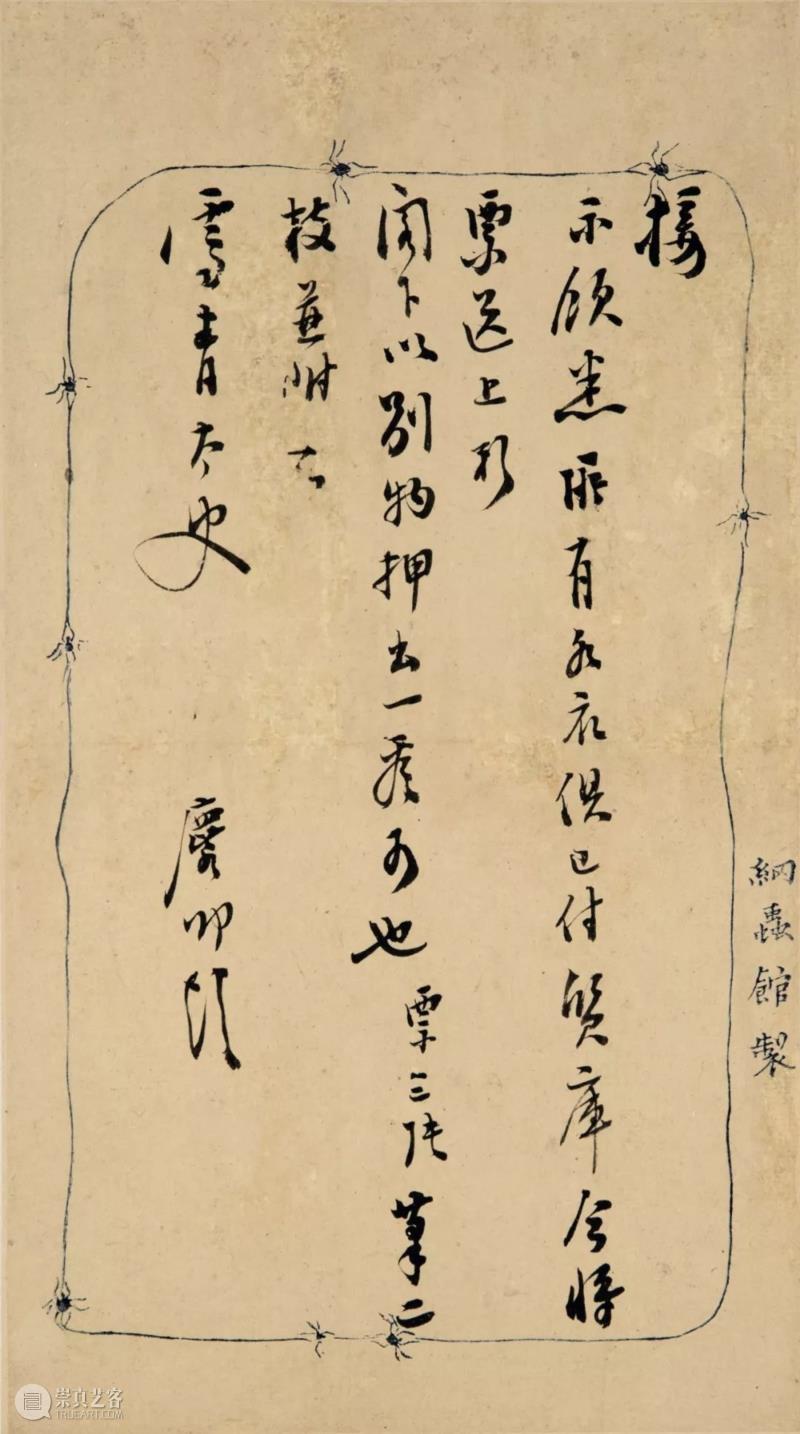 接
示領悉所有衣俱已付質庫今將
票送上祈
閣下以別物押出一套可也 票三張筆二
枝並附
雪青太史
叩頭
網蟲館製
崇真艺客
TRUEART.COM